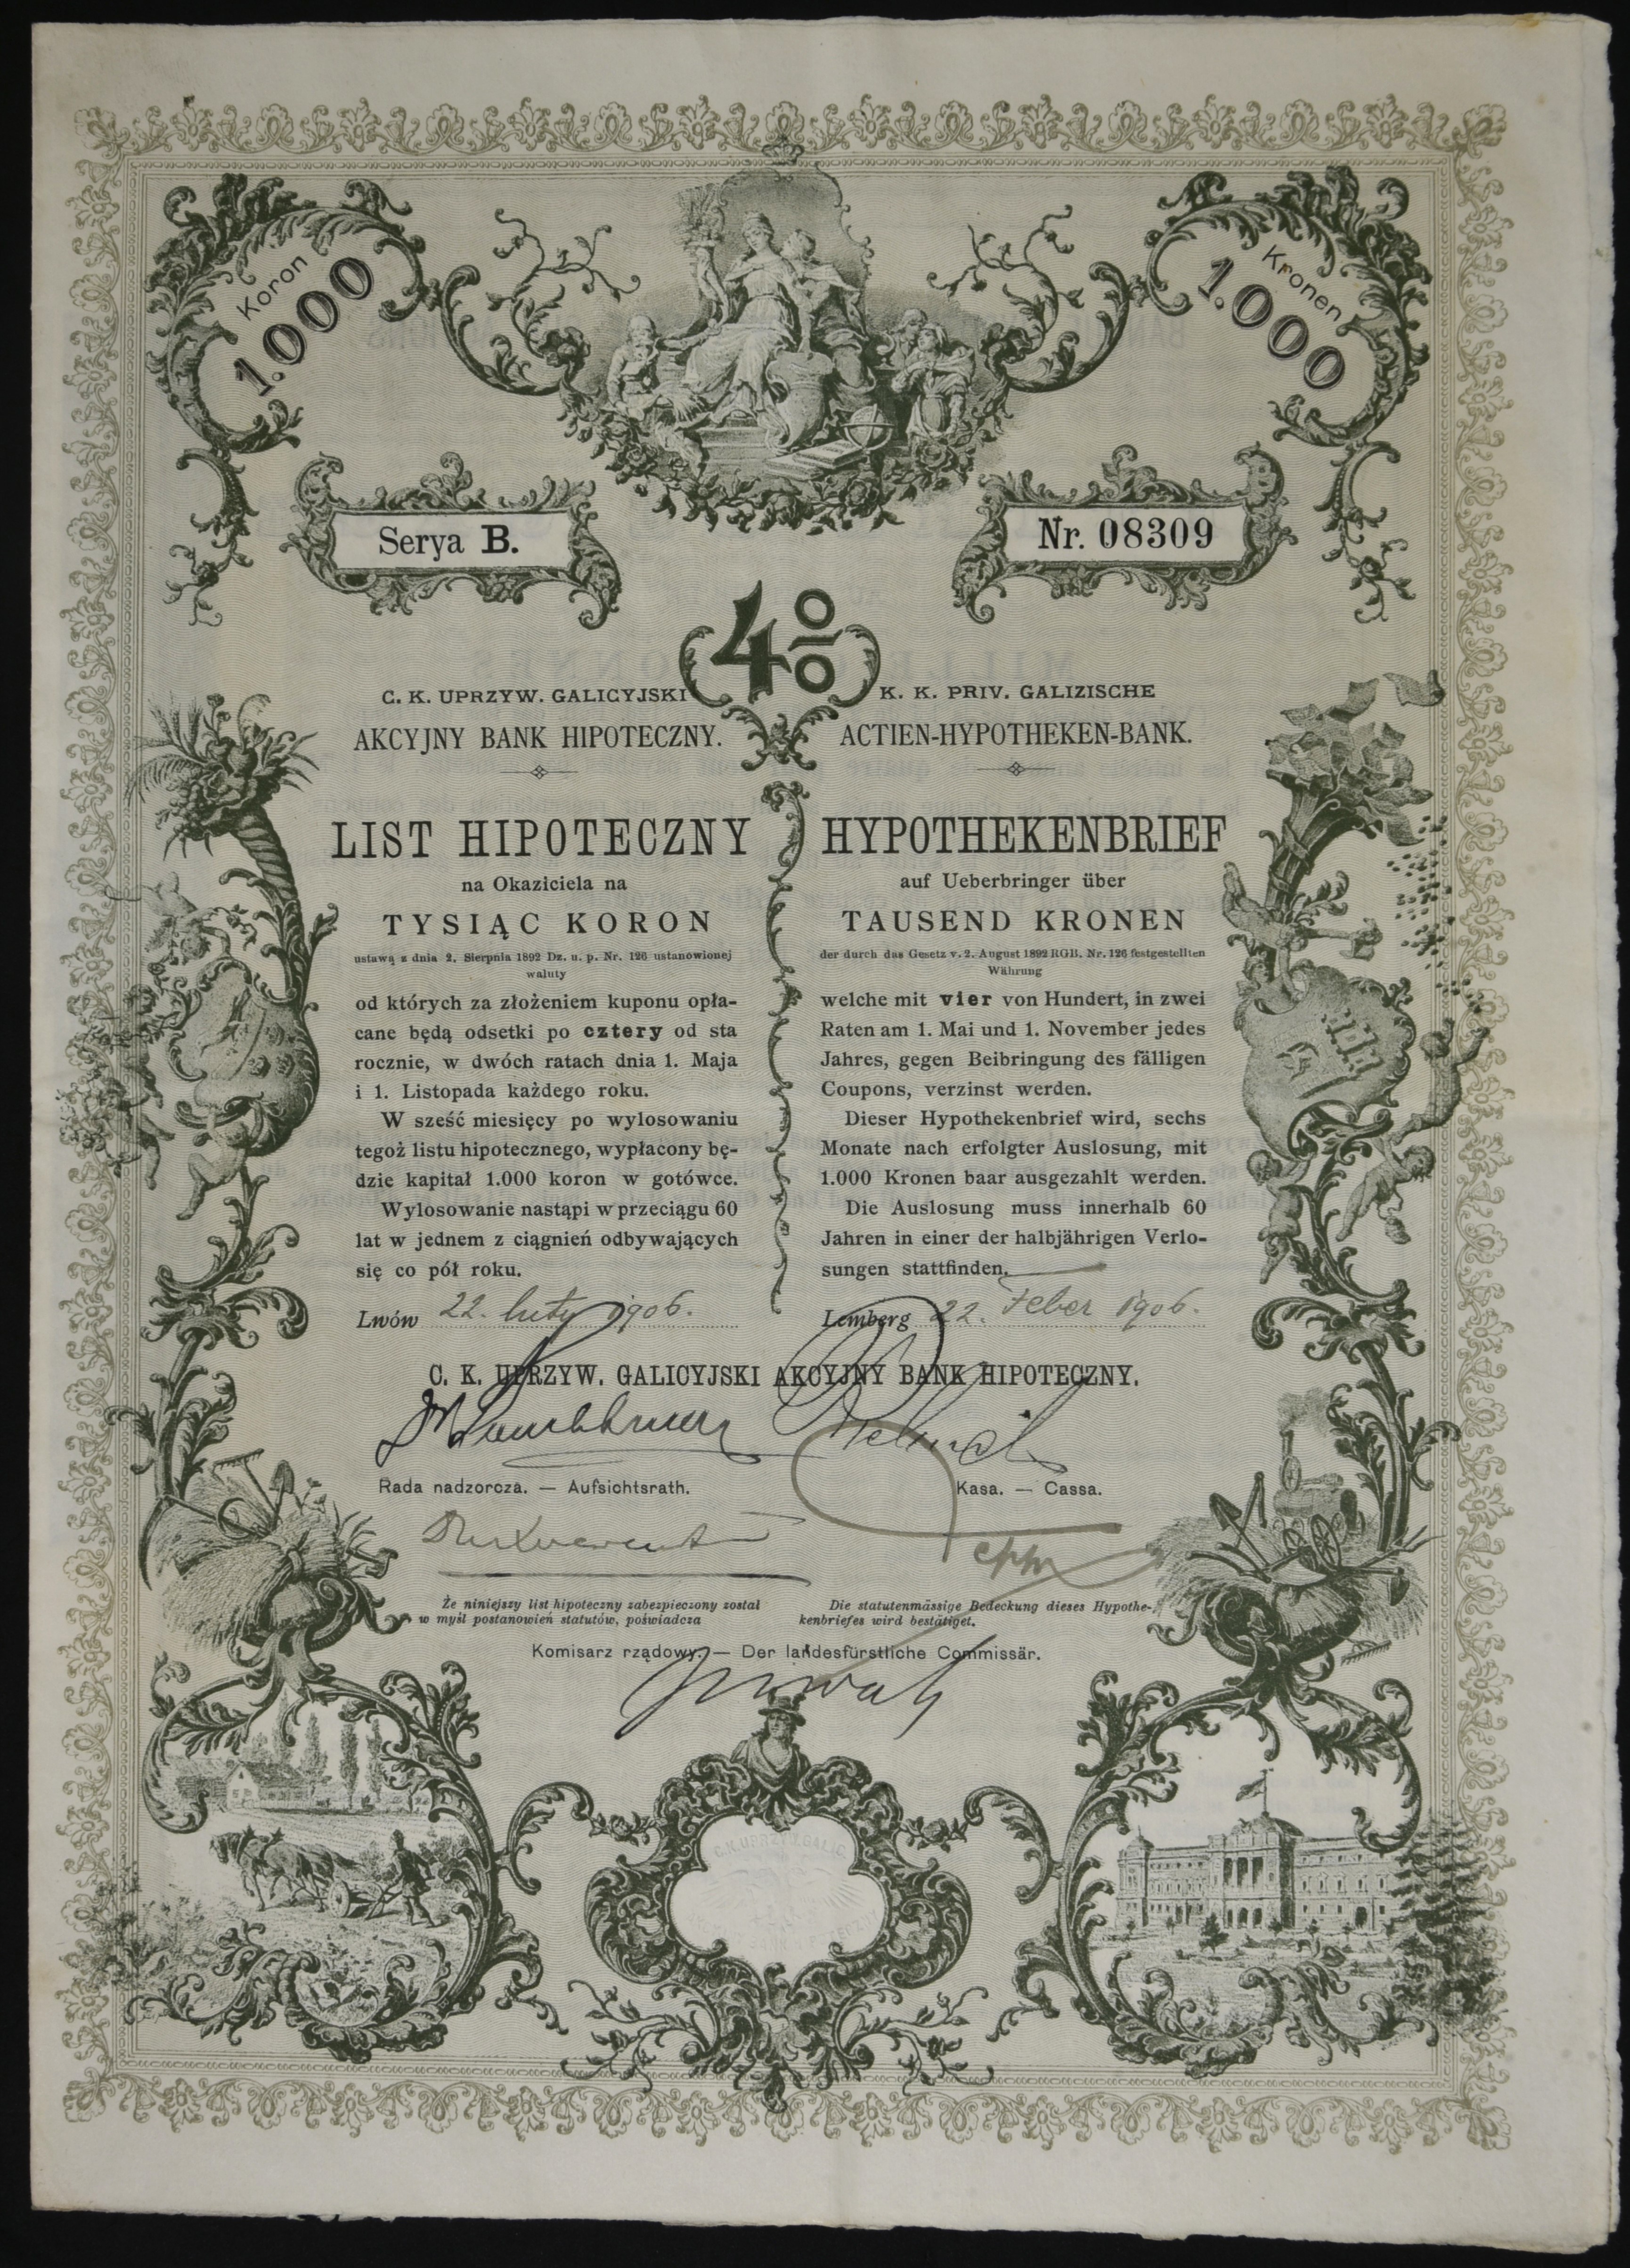 Koron
1.000
Kronen
1.000
Serya B.
Nr. 08309
4%
C. K. UPRZYW. GALICYJSKI
AKCYJNY BANK HIPOTECZNY.
LIST HIPOTECZNY
na Okaziciela na
TYSIĄC KORON
ustawą z dnia 2. Sierpnia 1892 Dz. u. p. Nr. 126 ustanowionej
waluty
od których za złożeniem kuponu opła-
cane będą odsetki po cztery od sta
rocznie, w dwóch ratach dnia 1. Maja
i 1. Listopada każdego roku.
W sześć miesięcy po wylosowaniu
tegoż listu hipotecznego, wypłacony bę-
dzie kapitał 1.000 koron w gotówce.
Wylosowanie nastąpi w przeciągu 60
lat w jednem z ciągnień odbywających
się co pół roku.
Lwów 22. luty 1906.
K. K. PRIV. GALIZISCHE
ACTIEN-HYPOTHEKEN-BANK.
HYPOTHEKENBRIEF
auf Ueberbringer über
TAUSEND KRONEN
der durch das Gesetz v. 2. August 1892 RGB. Nr. 126 festgestellten
Währung
welche mit vier von Hundert, in zwei
Raten am 1. Mai und 1. November jedes
Jahres, gegen Beibringung des fälligen
Coupons, verzinst werden.
Dieser Hypothekenbrief wird, sechs
Monate nach erfolgter Auslosung, mit
1.000 Kronen baar ausgezahlt werden.
Die Auslosung muss innerhalb 60
Jahren in einer der halbjährigen Verlo-
sungen stattfinden.
Lemberg 22. Feber 1906.
C. K. UPRZYW. GALICYJSKI AKCYJNY BANK HIPOTECZNY.
Rada nadzorcza. — Aufsichtsrath.
Kasa. — Cassa.
Że niniejszy list hipoteczny zabezpieczony został
w myśl postanowień statutów, poświadcza
Die statutenmässige Bedeckung dieses Hypothe-
kenbriefes wird bestätiget.
Komisarz rządowy. — Der landesfürstliche Commissär.
C. K. UPRZYW. GALIC.